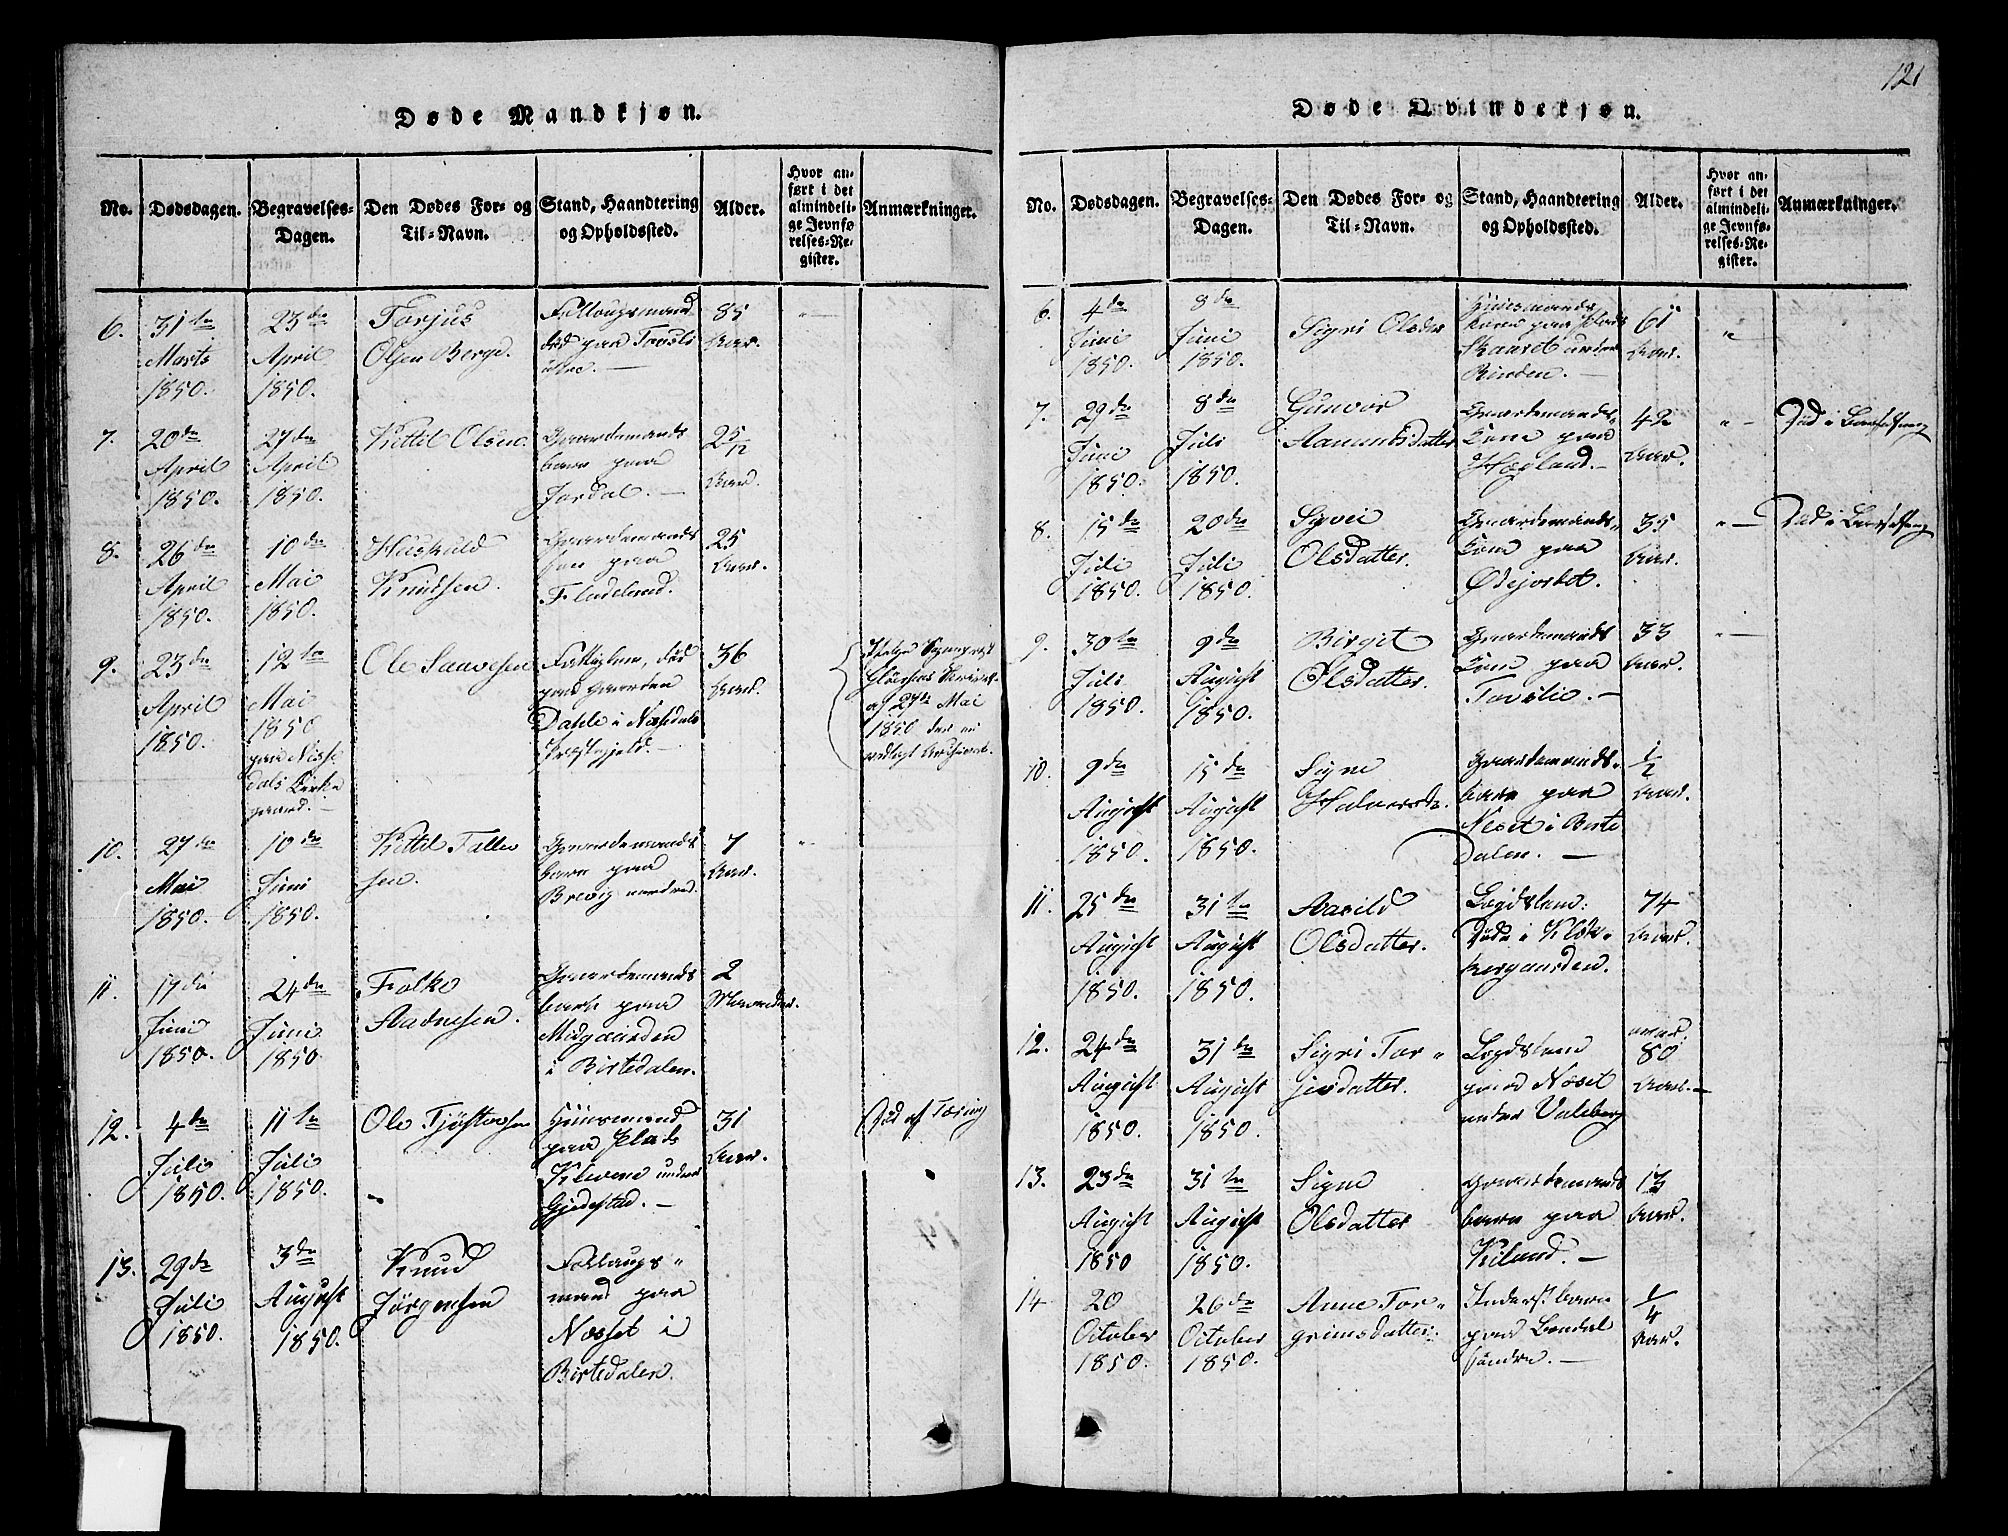 121
Døde Mandkjøn.
No.
Dødsdagen.
Begravelses-
Dagen.
Den Dødes For- og
Til-Navn.
Stand, Haandtering
og Opholdssted.
Alder.
Hvor an-
ført i det
almindeli-
ge Jevnfø-
relses-Re-
gister.
Anmærkninger.
6.
31te
Marts
1850.
23de
April
1850.
Torjus
Olsen Berge.
paa Tovsli
85
Aar.
7.
20de
April
1850.
27de
April
1850.
Kettil Olsen.
Gaardemands
barn paa
Jordal. —
2 5/12
Aar.
8.
26de
April
1850.
10de
Mai
1850.
Knudsen.
Gaardemands
søn paa
Fladeland.
25
Aar.
9.
23de
April
1850.
12te
Mai
1850
paa Nisse
dals Kirke
gaard. —
Ole Saavesen
Fattiglem, død
paa Gaarden
Dahle i Nissedals
Præstegjeld. —
36
Aar.
af 27de Mai
1850
10.
27de
Mai
1850.
10de
Juni
1850.
Kettil Talle
sen.
Gaardemands
barn paa
Brevig nordre
7
Aar.
11.
17de
Juni
1850.
24de
Juni
1850
Folke
Aadnesen.
Gaardemands
barn paa
Midgaarden
i Birtedalen.
2
Maaneder.
12.
4de
Juli
1850.
11te
Juli
1850.
Ole Tjøstovsen
Huusmand
paa Plads
under
31
Aar.
Død af Tæring
13.
29de
Juli
1850.
3de
August
1850.
Knud
Jørgensen
mand paa
Nesset i
Birtedalen.
Døde Qvindekjøn.
No.
Dødsdagen.
Begravelses-
Dagen.
Den Dødes For- og
Til-Navn.
Stand, Haandtering
og Opholdssted.
Alder.
Hvor an-
ført i det
almindeli-
ge Jevnfø-
relses-Re-
gister.
Anmærkninger.
6.
4de
Juni
1850.
8de
Juni
1850.
Sigri Olsdr
Huusmands
kone paa Plads
under
61
Aar.
7.
29de
Juni
1850.
8de
Juli
1850.
Gunvor
Aamundsdatter
Gaardemands-
kone paa
42
Aar.
Død i Barselseng
8.
15de
Juli
1850.
20de
Juli
1850.
Sigvei
Olsdatter.
Gaardemands-
kone paa
35
Aar.
Død i Barselseng
9.
30te
Juli
1850.
9de
August
1850.
Birgit
Olsdatter.
Gaardemands
kone paa
Tovslie. —
33
Aar.
10.
9de
August
1850.
15de
August
1850.
Signe
Halvorsdr.
Gaardemands-
barn paa
Neset i Birte
dalen. —
1/2
Aar.
11.
25de
August
1850.
31te
August
1850.
Aasild
Olsdatter.
Lægdslem:
Døde i Klok-
kergaarden.
74
Aar.
12.
24de
August
1850.
31te
August
1850.
Sigri Tor-
jusdatter.
Lægdslem
paa Neset
under Valeberg
80
Aar. —
13.
23de
August
1850
31te
August
1850.
Signe
Olsdatter
Gaardemands
barn paa
Kiland. —
13
Aar.
14
20
October
1850.
26de
October
1850.
Anne Tor-
grimsdatter.
Inderst barn
paa Bondal
søndre. —
1/4
Aar.